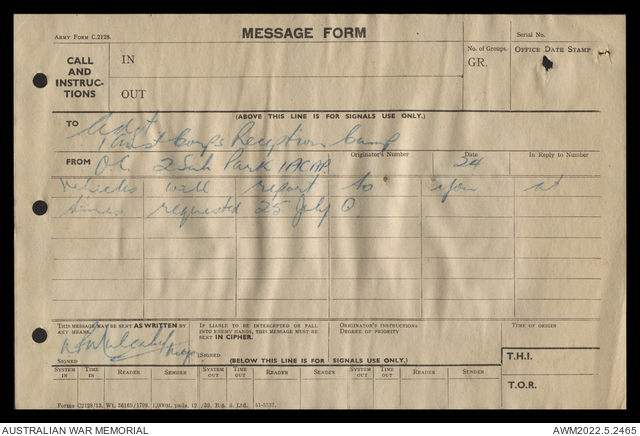 ARMY FORM C.2128.
MESSAGE FORM
Serial No.
CALL AND INSTRUC- TIONS
IN
OUT
No. of Groups.
GR.
OFFICE DATE STAMP
(ABOVE THIS LINE IS FOR SIGNALS USE ONLY.)
TO Adjt
1 Aust Corps Reception Camp
FROM OC 2 Sub Park
Originator's Number
Date
24
In Reply to Number
Vehicles will report to you at
times requested 25 July
THIS MESSAGE MAY BE SENT AS WRITTEN BY ANY MEANS.
IF LIABLE TO BE INTERCEPTED OR FALL INTO ENEMY HANDS, THIS MESSAGE MUST BE SENT IN CIPHER.
ORIGINATOR'S INSTRUCTIONS DEGREE OF PRIORITY
TIME OF ORIGIN
SIGNED
SIGNED
(BELOW THIS LINE IS FOR SIGNALS USE ONLY.)
T.H.I.
SYSTEM IN
TIME IN
READER
SENDER
SYSTEM OUT
TIME OUT
READER
SENDER
SYSTEM OUT
TIME OUT
READER
SENDER
T.O.R.
Forms C2128/13. Wt.
AUSTRALIAN WAR MEMORIAL
AWM2022.5.2465